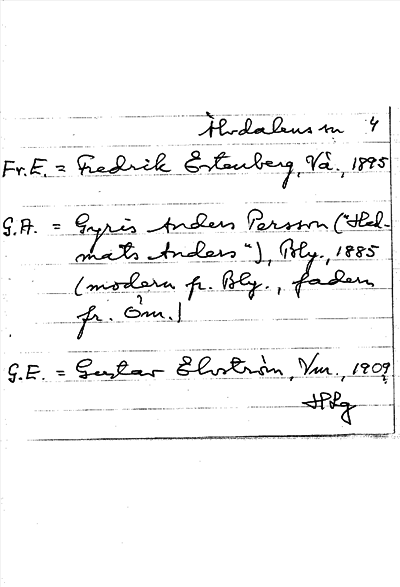 Älvdalens sn 4
Fr.E. = Fredrik Estenberg, Vå., 1895
G.A. = Gyris Anders Persson ("Hed-
mats Anders"), Bly., 1885
(modern fr. Bly., fadern
fr. Öm.)
G.E. = Gustav Elvström, Vm., 1909
HLg